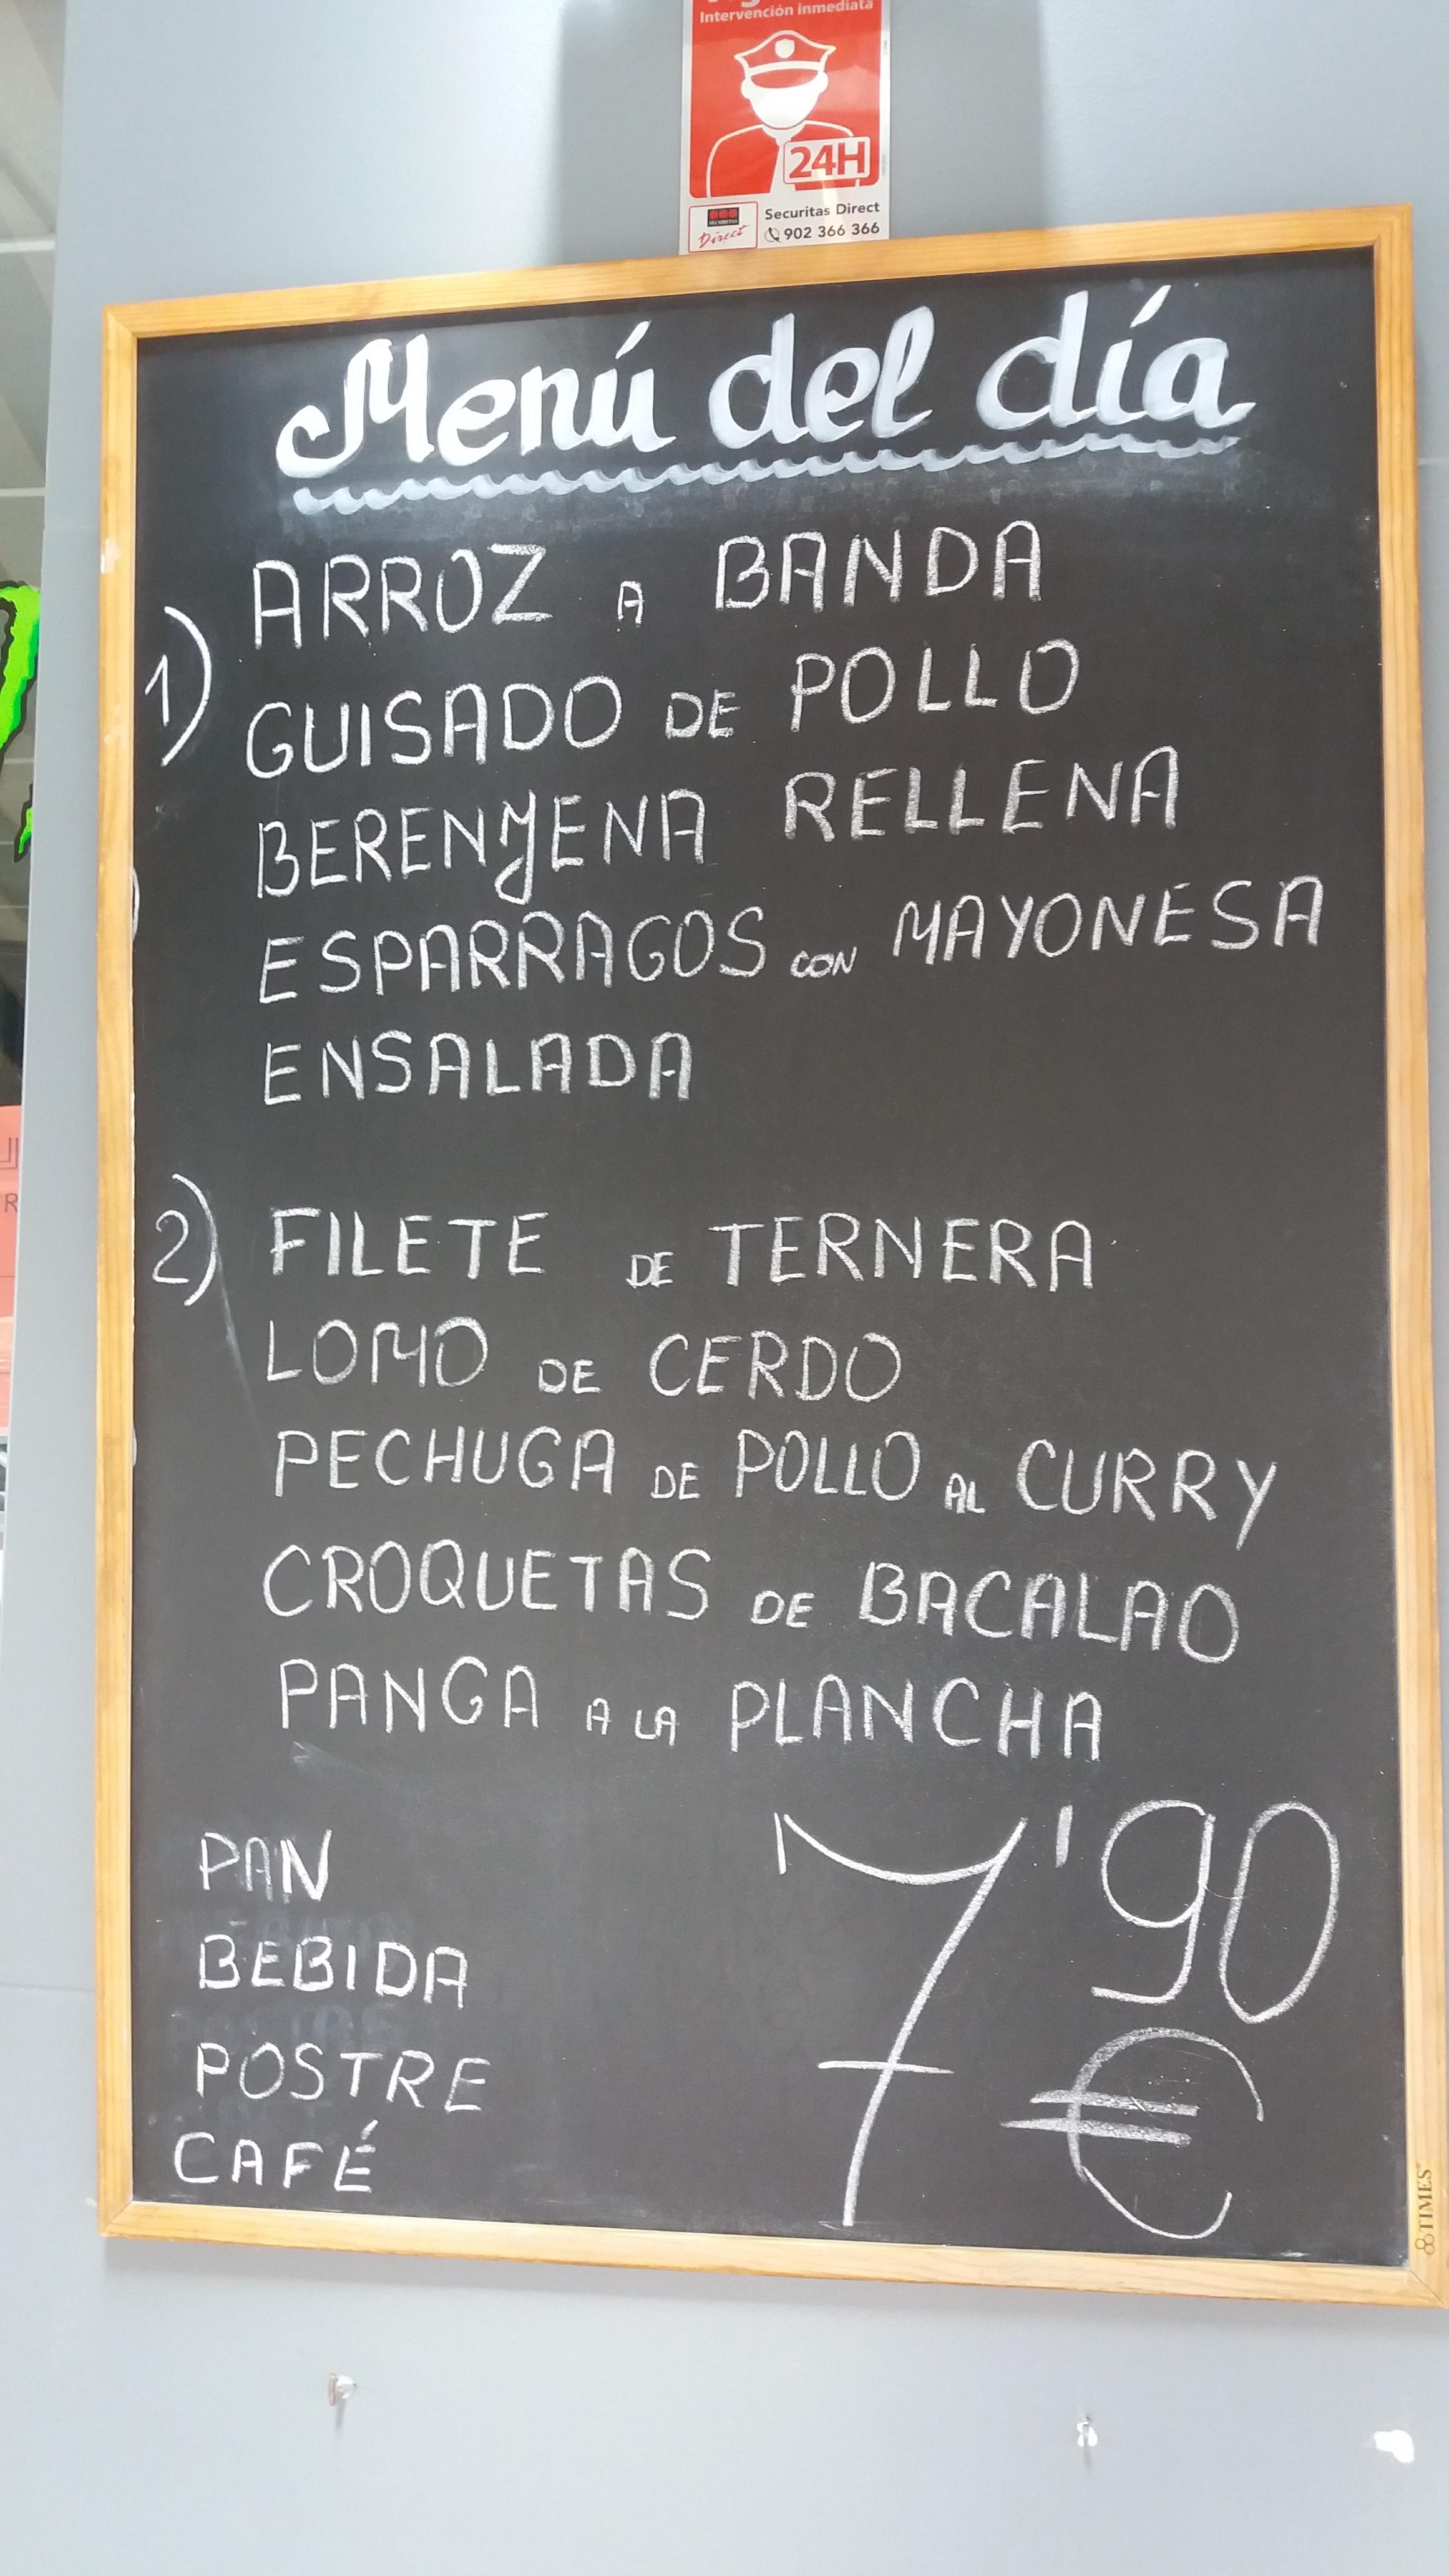 Intervención inmediata
24H
SECURITAS
Direct
Securitas Direct
902 366 366
Menú del día
ARROZ A BANDA
1)
GUISADO DE POLLO
BERENJENA RELLENA
ESPARRAGOS CON MAYONESA
ENSALADA
2) FILETE DE TERNERA
LOMO DE CERDO
PECHUGA DE POLLO AL CURRY
CROQUETAS DE BACALAO
PANGA A LA PLANCHA
PAN
BEBIDA
POSTRE
CAFÉ
7'90
€
TIMES